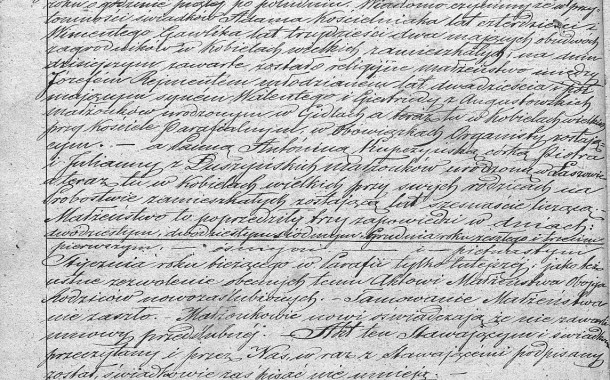 roku o godzinie piątej po południu. Wiadomo czynimy, że w przy
tomności świadków Adama Kościelniaka lat czterdzieści i
Wincentego Gawlika lat trzydzieści dwa mających obudwóch
zagrodników w Kobielach wielkich zamieszkałych, na dniu
dzisiejszym zawarte zostało religijne małżeństwo między
Józefem Rejmentem młodzianem lat dwadzieścia i pół
mającym synem Walentego i Giertrudy z Augustowskich
małżonków urodzonym w Gidlach a teraz tu w Kobielach wielkich
przy kościele Parafialnym, w obowiązkach Organisty zostają-
cym. — a Panną Antoniną Kupczyńską córką Piotra
i Julianny z małżonków urodzoną w
a teraz tu w Kobielach wielkich przy swych rodzicach na
probostwie zamieszkałych zostającą lat szesnaście liczącą
Małżeństwo to poprzedziły trzy zapowiedzi w dniach:
dwudziestym, dwudziestym siódmym, Grudnia roku zeszłego i trzecim
pierwszym. — ósmym i piętnastym
Stycznia roku bieżącego w Parafii tylko tutejszej, jako też
ustne zezwolenie obecnych temu Aktowi Małżeństwa Obojga
Rodziców nowozaślubionych. — Tamowanie Małżeństwa
nie zaszło. Małżonkowie nowi oświadczają że nie zawarli
umowy przedślubnéj — Akt ten Stawającym i świadkom
przeczytany i przez Nas w raz z stawającemi podpisany
został, świadkowie zaś pisać nie umieją. —